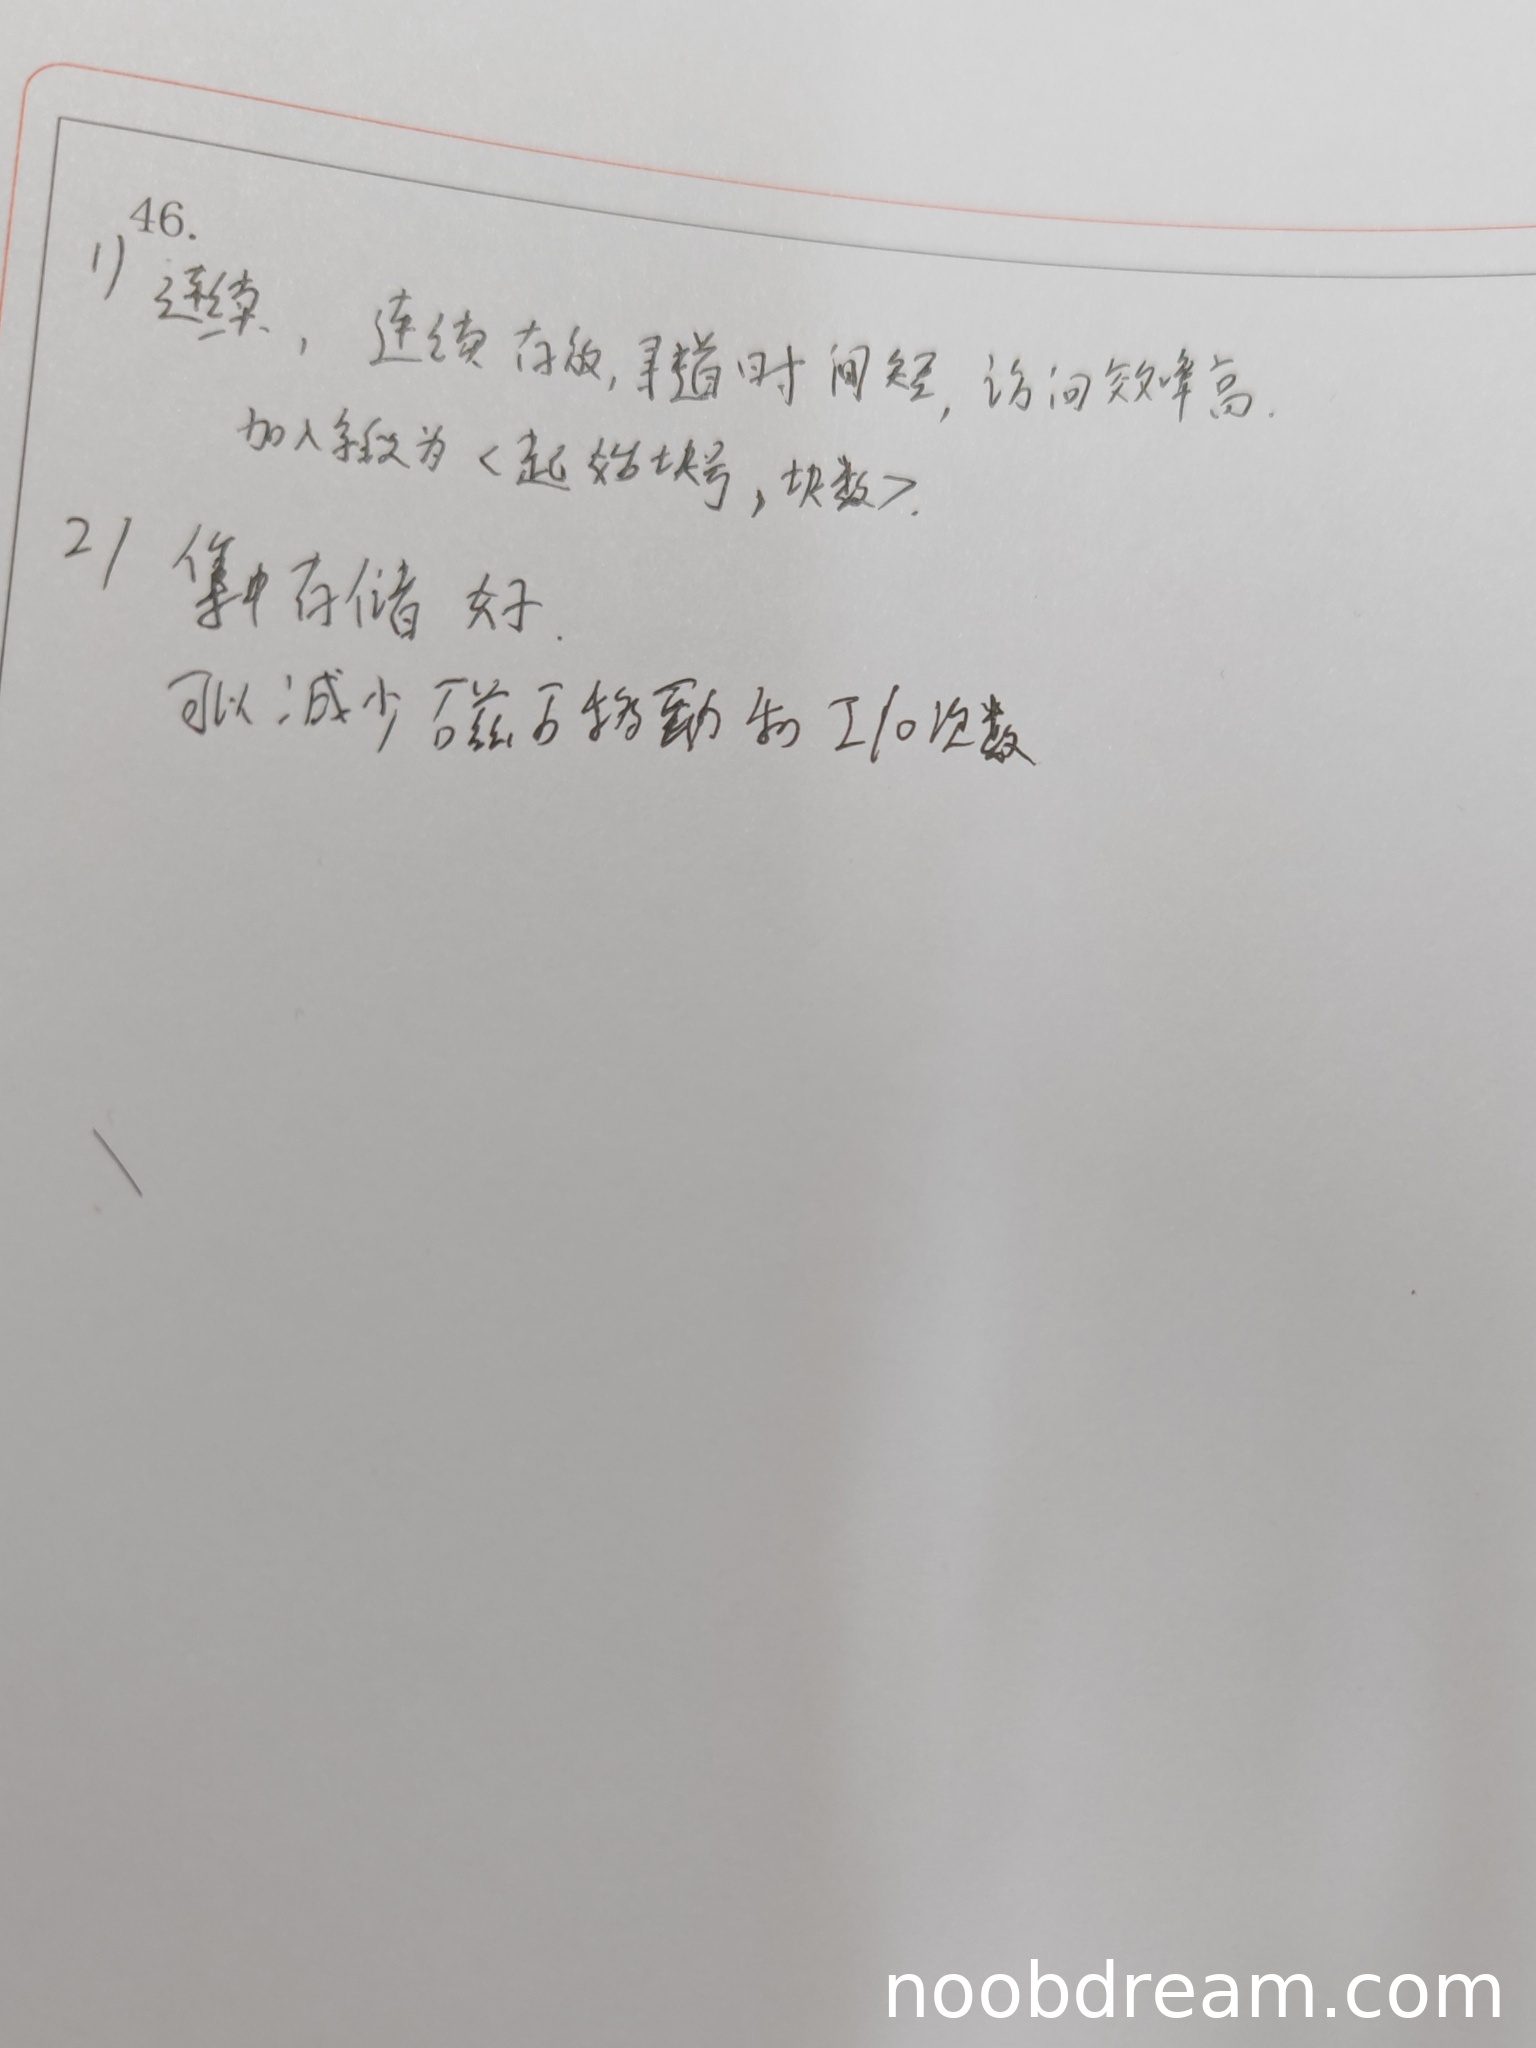 46.
1) 连续, 连续存放, 寻道时间短, 访问效率高.
加入字段为<起始块号, 块数>.
2) 集中存储 好.
可以减少磁头移动和I/O次数
noobdream.com